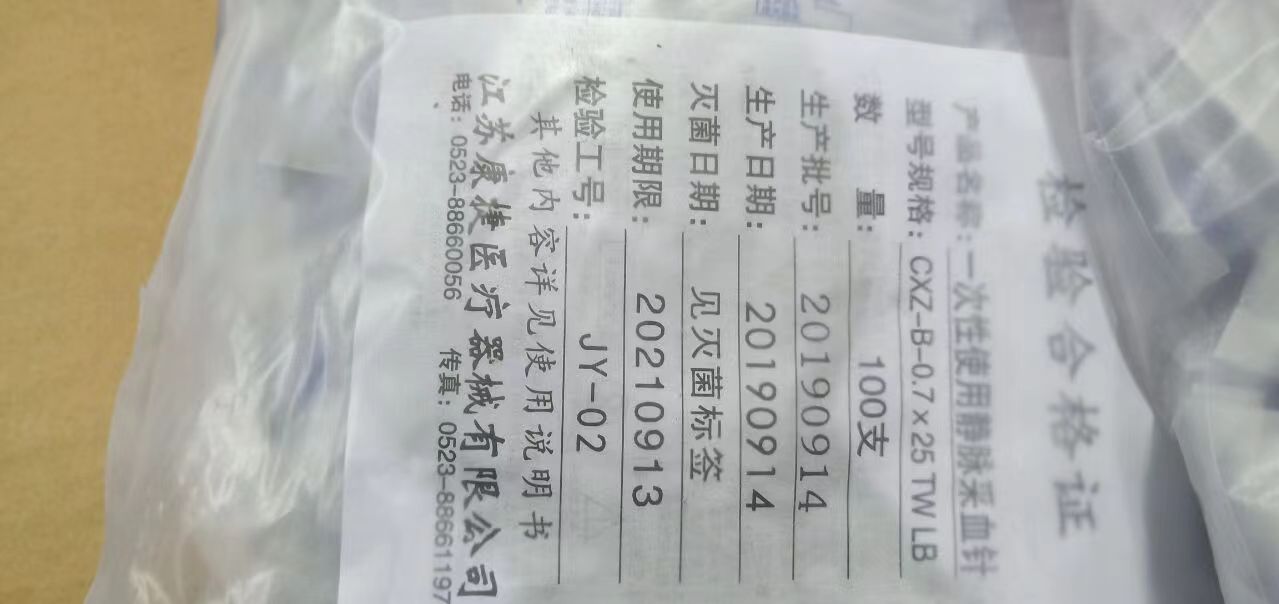 检验合格证
产品名称：一次性使用静脉采血针
型号规格：CXZ-B-0.7×25 TW LB
数量：100支
生产批号：20190914
生产日期：20190914
灭菌日期：见灭菌标签
使用期限：20210913
检验工号：JY-02
其他内容详见使用说明书
江苏康捷医疗器械有限公司
电话：0523-88660056 传真：0523-88661197